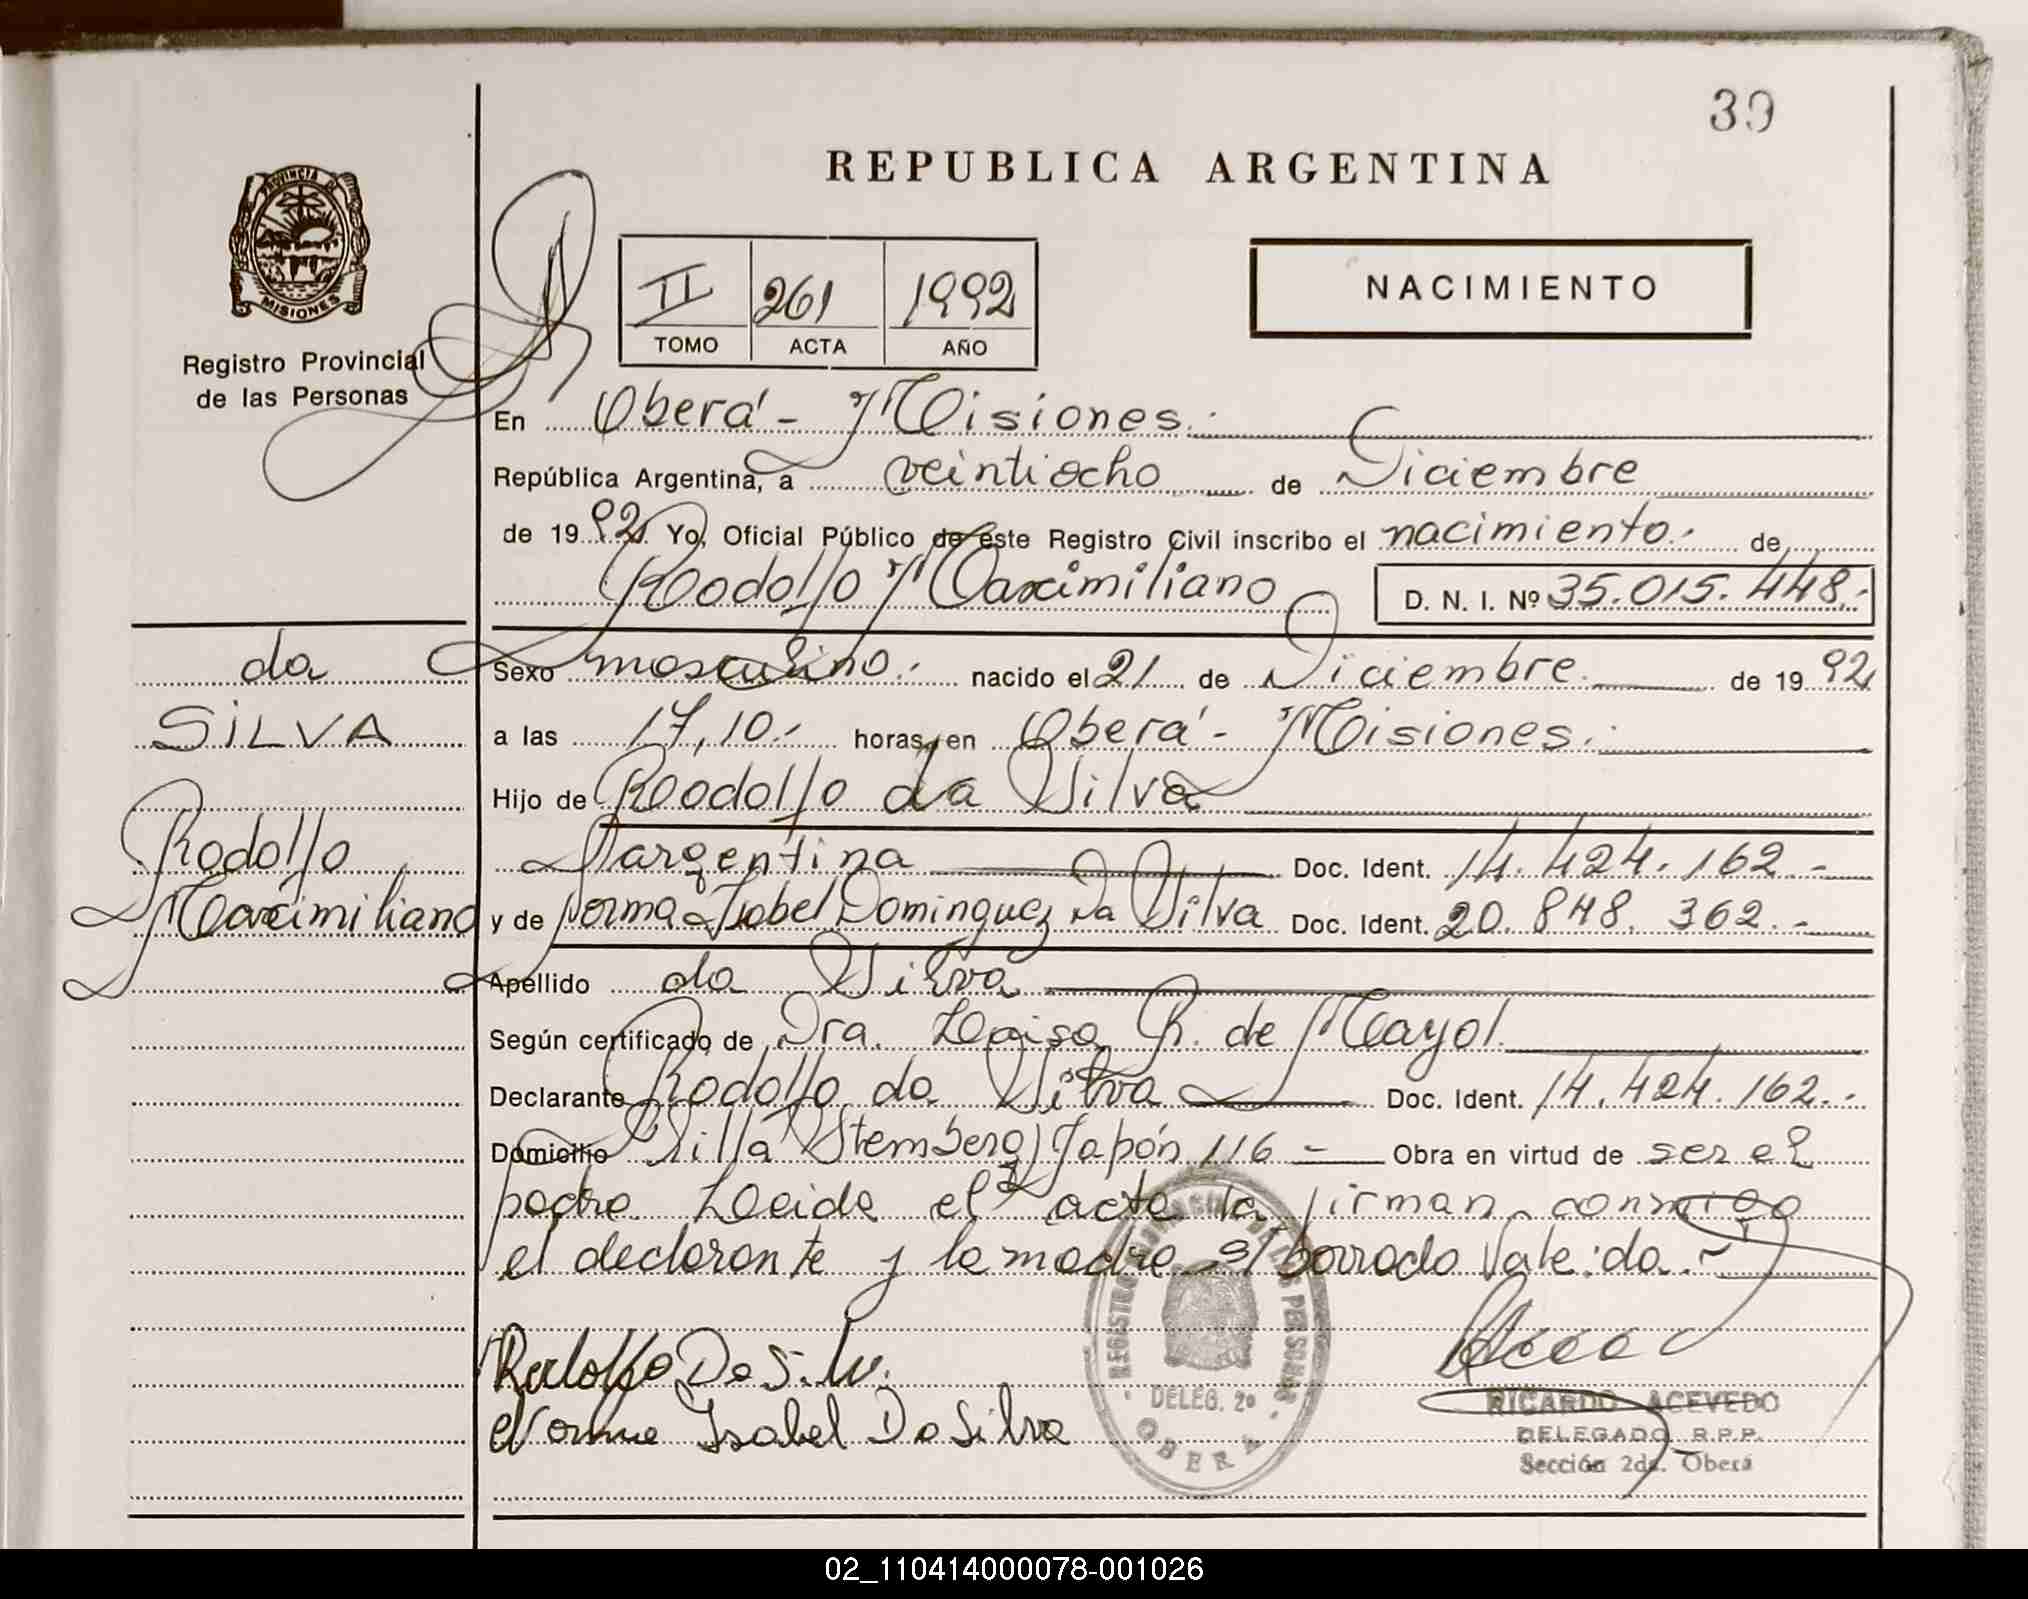 39
REPUBLICA ARGENTINA
PROVINCIA DE
MISIONES
Registro Provincial
de las Personas
II 261 1992
TOMO ACTA AÑO
NACIMIENTO
En Oberá - Misiones.-
República Argentina, a veintiocho de Diciembre
de 1992. Yo, Oficial Público de este Registro Civil inscribo el nacimiento.- de
Rodolfo Maximiliano D. N. I. Nº 35.015.448.-
da
SILVA
Rodolfo
Maximiliano
Sexo masculino.- nacido el 21 de Diciembre. de 1992
a las 17,10.- horas, en Oberá - Misiones.-
Hijo de Rodolfo da Silva
argentina Doc. Ident. 14.424.162.-
y de Norma Isabel Dominguez Da Silva Doc. Ident. 20.848.362.-
Apellido da Silva
Según certificado de Dra. Luisa R. de Mayol.
Declarante Rodolfo da Silva Doc. Ident. 14.424.162.-
Domicilio Villa Stemberg, Japón 116 - Obra en virtud de ser el
padre. Leida el acta la firman conmigo
el declarante y la madre s/ borrado Vale: da.-
Rodolfo Da Silv.
Norma Isabel Da Silva
REGISTRO PROVINCIAL DE LAS PERSONAS
DELEG. 2ª
OBERA
RICARDO ACEVEDO
DELEGADO R.P.P.
Sección 2da. Oberá
02_110414000078-001026